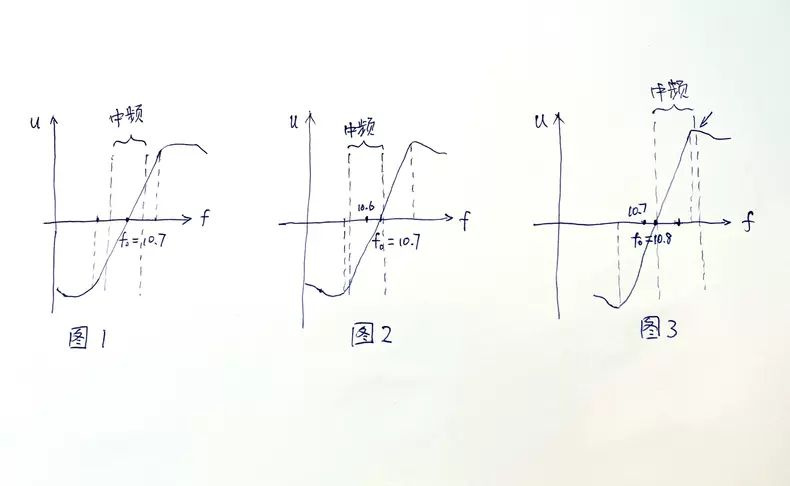 中频
u
f
f₀=10.7
图1
中频
u
10.6
f
f₀=10.7
图2
中频
u
10.7
f
f₀=10.8
图3